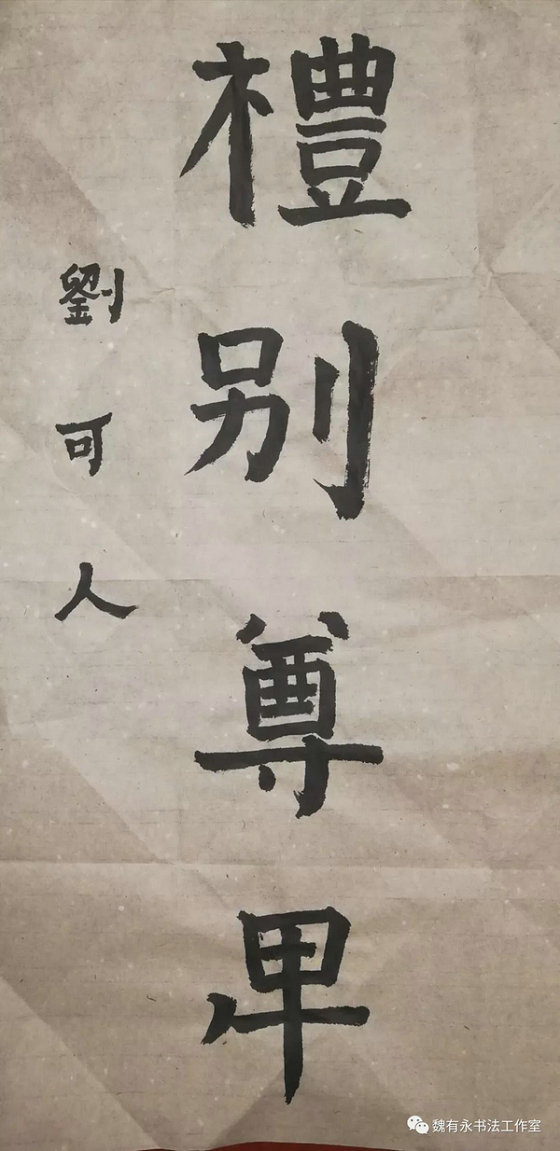 禮别尊卑
劉可人
魏有永书法工作室